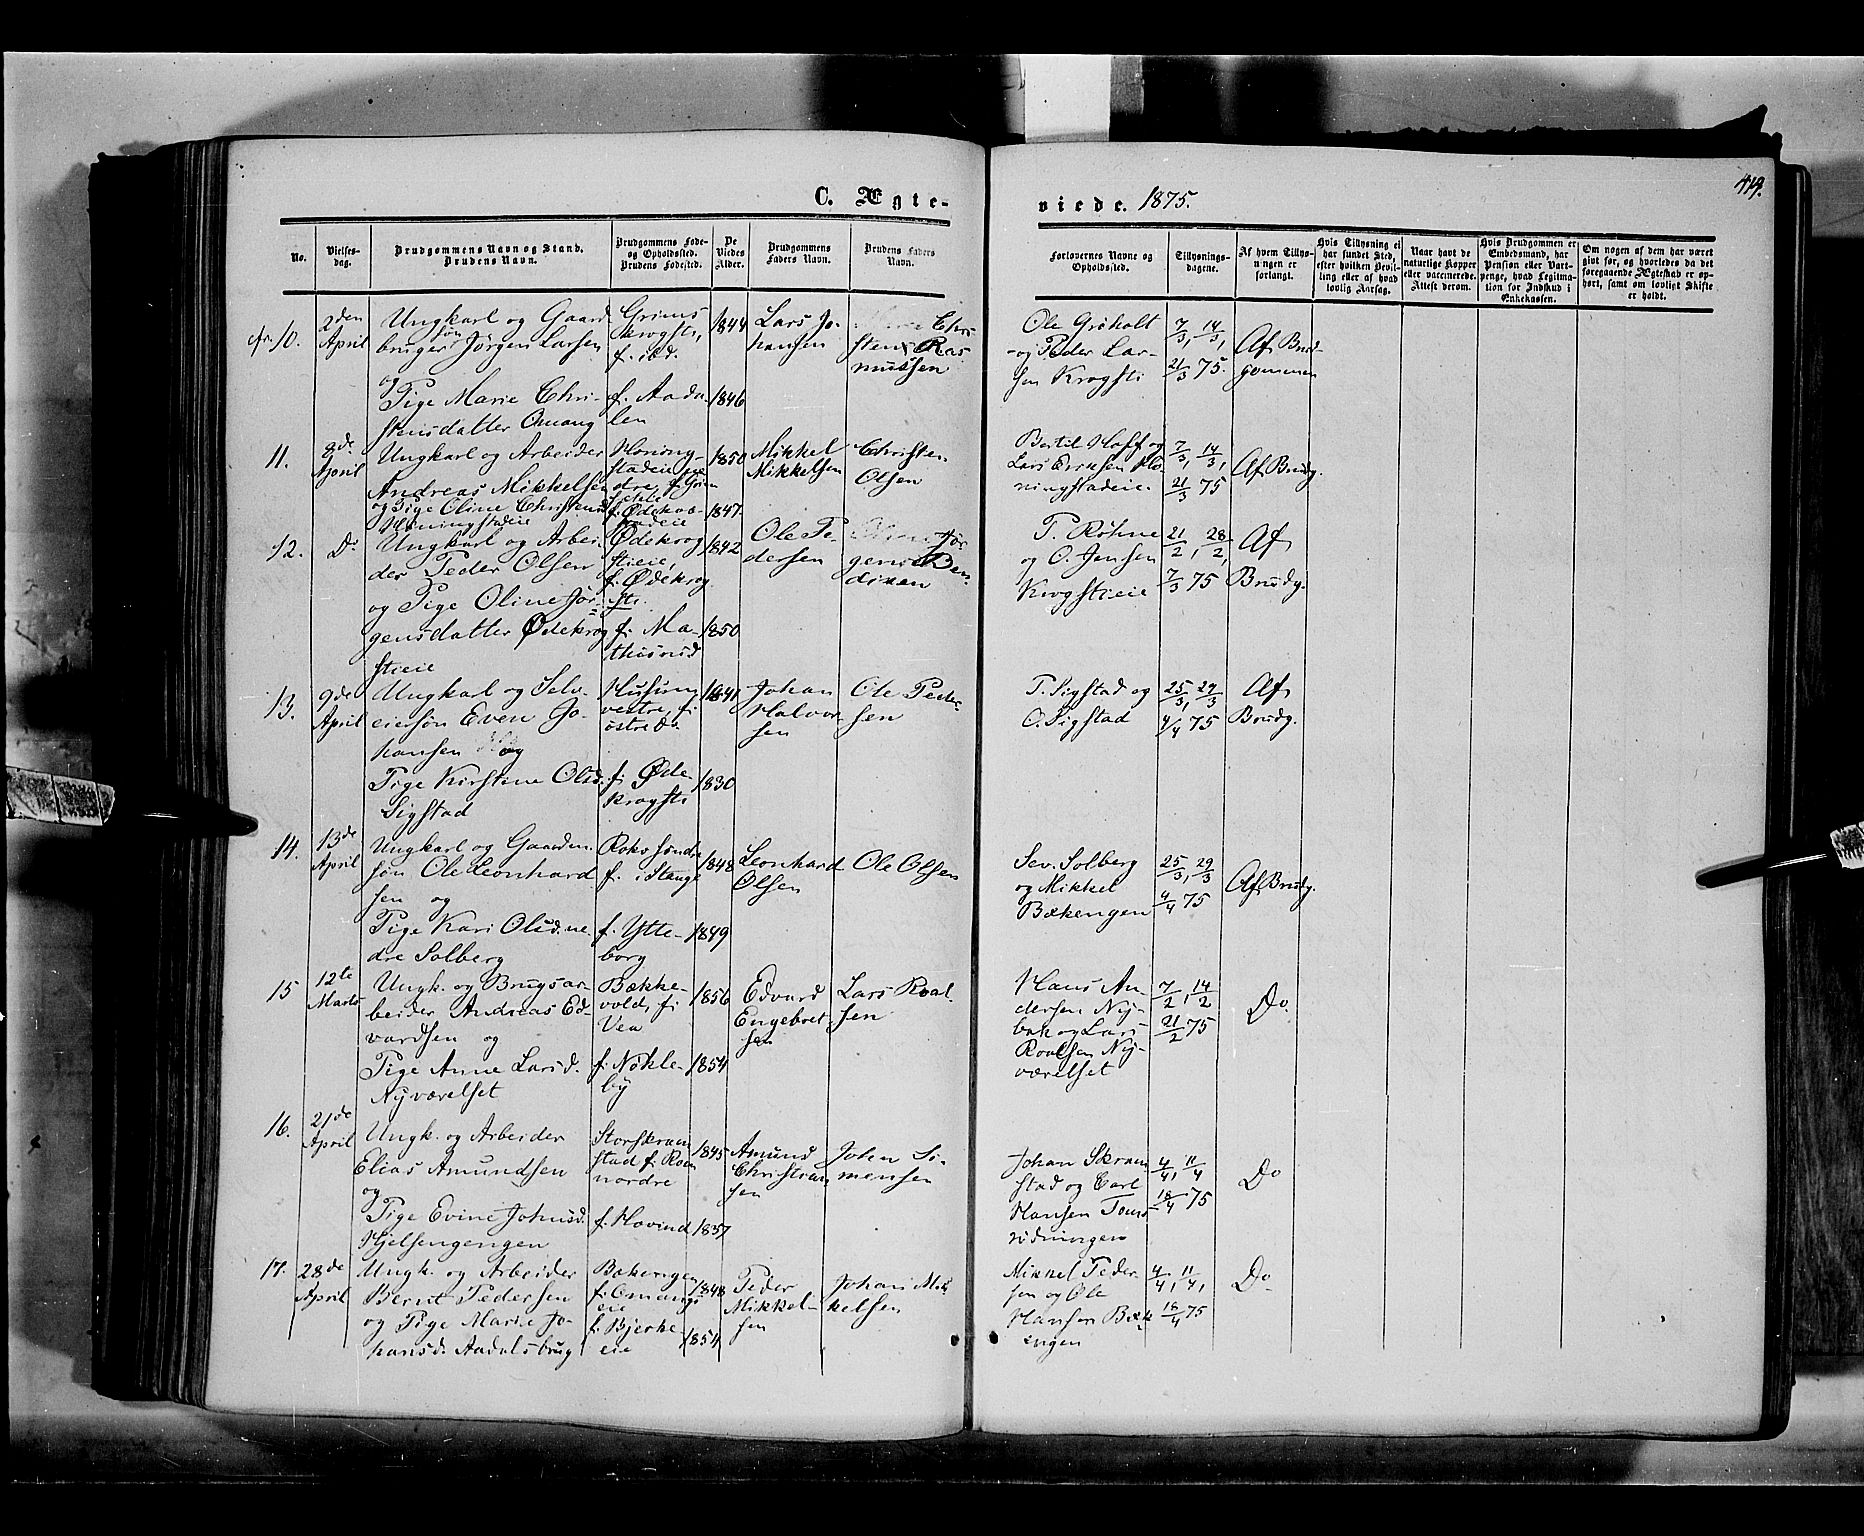 C. Ægte-
viede. 1875.
419.
No.
Vielses-
dag.
Brudgommens Navn og Stand.
Brudens Navn.
Brudgommens Føde-
og Opholdssted.
Brudens Fødested.
De
Viedes
Alder.
Brudgommens
Faders Navn.
Brudens Faders
Navn.
Forlovernes Navne og
Opholdssted.
Tillysnings-
dagene.
Af hvem Tillys-
ningen er
forlangt.
Hvis Tillysning ei
har fundet Sted,
efter hvilken Bevil-
ling eller af hvad
lovlig Aarsag.
Naar havt de
naturlige Kopper
eller vaccinerede.
Attest derom.
Hvis Brudgommen er
Embedsmand, har
Pension eller Vart-
penge, hvad Legitima-
tion for Indskud i
Enkekassen.
Om nogen af dem har været
gift før, og hvorledes da det
foregaaende Ægteskab er op-
hørt, samt om lovligt Skifte
er holdt.
10.
2den
April
Ungkarl og Gaard
bruger søn Jørgen Larsen
og
Pige Marie Chri-
stensdatter Omang
Grims
Krogsti,
f. ibd.
f. Aada-
len
1844
1846
Lars Jo-
hansen
Chri-
sten Ras-
mussen
Ole Grøholt
og Peder Lar-
sen Krogsti
7/3, 14/3,
21/3 75.
Af Brud-
gommen
11.
8de
April
Ungkarl og Arbeider
Andreas Mikkelsen
og Pige Oline Christensd.
Honingstadeie
Honing-
stadeie
1850
1847
Mikkel
Mikkelsen
Christen
Olsen
Bertil Hoff og
Lars Eriksen Ho-
ningstadeie
7/3, 14/3,
21/3 75
Af Brudg.
12.
Do
Ungkarl og Arbei-
der Peder Olsen
og Pige Oline Jør-
gensdatter Ødekrog
stieie
Ødekrog
stieie,
f. Ødekrog
sti.
f. Ma-
thisrud
1842
1850
Ole Pe-
dersen
Jør-
gen Ben-
dixen
P. Røhne
og O. Jensen
Krogstieie
21/2, 28/2,
7/3 75
Af
Brudg.
13.
9de
April
Ungkarl og Selv-
eiersøn Even Jo-
hansen og
Pige Kirstine Olsd.
Sigstad
Husum
vestre, f.
østre Do.
f. Øde-
krogsti
1841
1830
Johan
Halvor-
sen
Ole Peder-
sen
P. Sigstad og
O. Sigstad
25/3, 29/3
4/4 75
Af
Brudg.
14.
13de
April
Ungkarl og Gaardm.
søn Ole Leonhard
sen og
Pige Kari Olsd. ne-
dre Solberg
Roko søndre
f. i Stange
f. Ytte-
borg
1848
1849
Leonhard
Olsen
Ole Olsen
Sev. Solberg
og Mikkel
Bækengen
25/3, 29/3
4/4 75
Af Brudg.
15
12te
Marts
Ungk. og Brugsar-
beider Andreas Ed-
vardsen og
Pige Anne Larsd.
Nyværelset
Bække-
vold, f.
Vea
f. Nøkle-
by
1856
1854
Edvard
Engebret
sen
Lars Roal-
sen
Hans An-
dersen Ny-
bak og Lars
Roalsen Ny-
værelset
7/2, 14/2
21/2 75
Do
16.
21de
April
Ungk. og Arbeider
Elias Amundsen
og
Pige Evine Johnsd.
Hjelsengengen
Storskram
stad f. Roen
nordre
f. Hovind
1845
1857
Amund
Christian
sen
John Si-
mensen
Johan Skram
stad og Carl
Hansen
4/4, 11/4
18/4 75
Do
17.
28de
April
Ungk. og Arbeider
Bernt Pedersen
og Pige Marie Jo-
hansd. Aadalsbrug
Bækengen
f. Omangs
eie
f. Bjerke-
eie
1848
1854
Peder
Mikkel-
sen
Johan Mik-
kelsen
Mikkel Peder-
sen og Ole
Hansen Bæk
engen
4/4, 11/4,
18/4 75
Do